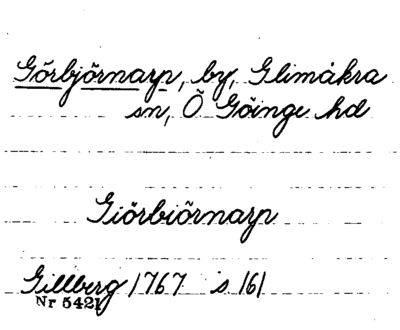 Görbjörnarp, by, Glimåkra
sn, Ö Göinge hd
Giörbiörnarp
Gillberg 1767 s 161
Nr 5421